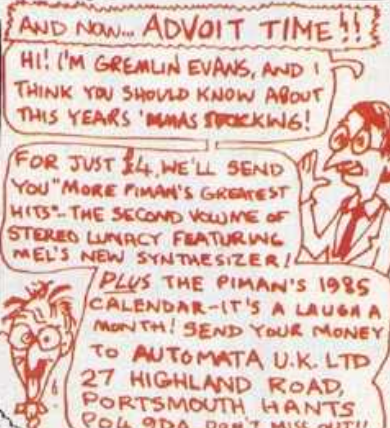 AND NOW... ADVOIT TIME!!
HI! I'M GREMLIN EVANS, AND I
THINK YOU SHOULD KNOW ABOUT
THIS YEARS 'MMAS STOCKING!
FOR JUST £4, WE'LL SEND
YOU "MORE PIMAN'S GREATEST
HITS"-THE SECOND VOLUME OF
STEREO LUNACY FEATURING
MEL'S NEW SYNTHESIZER!
PLUS THE PIMAN'S 1985
CALENDAR-IT'S A LAUGH A
MONTH! SEND YOUR MONEY
TO AUTOMATA U.K. LTD
27 HIGHLAND ROAD,
PORTSMOUTH HANTS
PO4 9DA DON'T MISS OUT!!